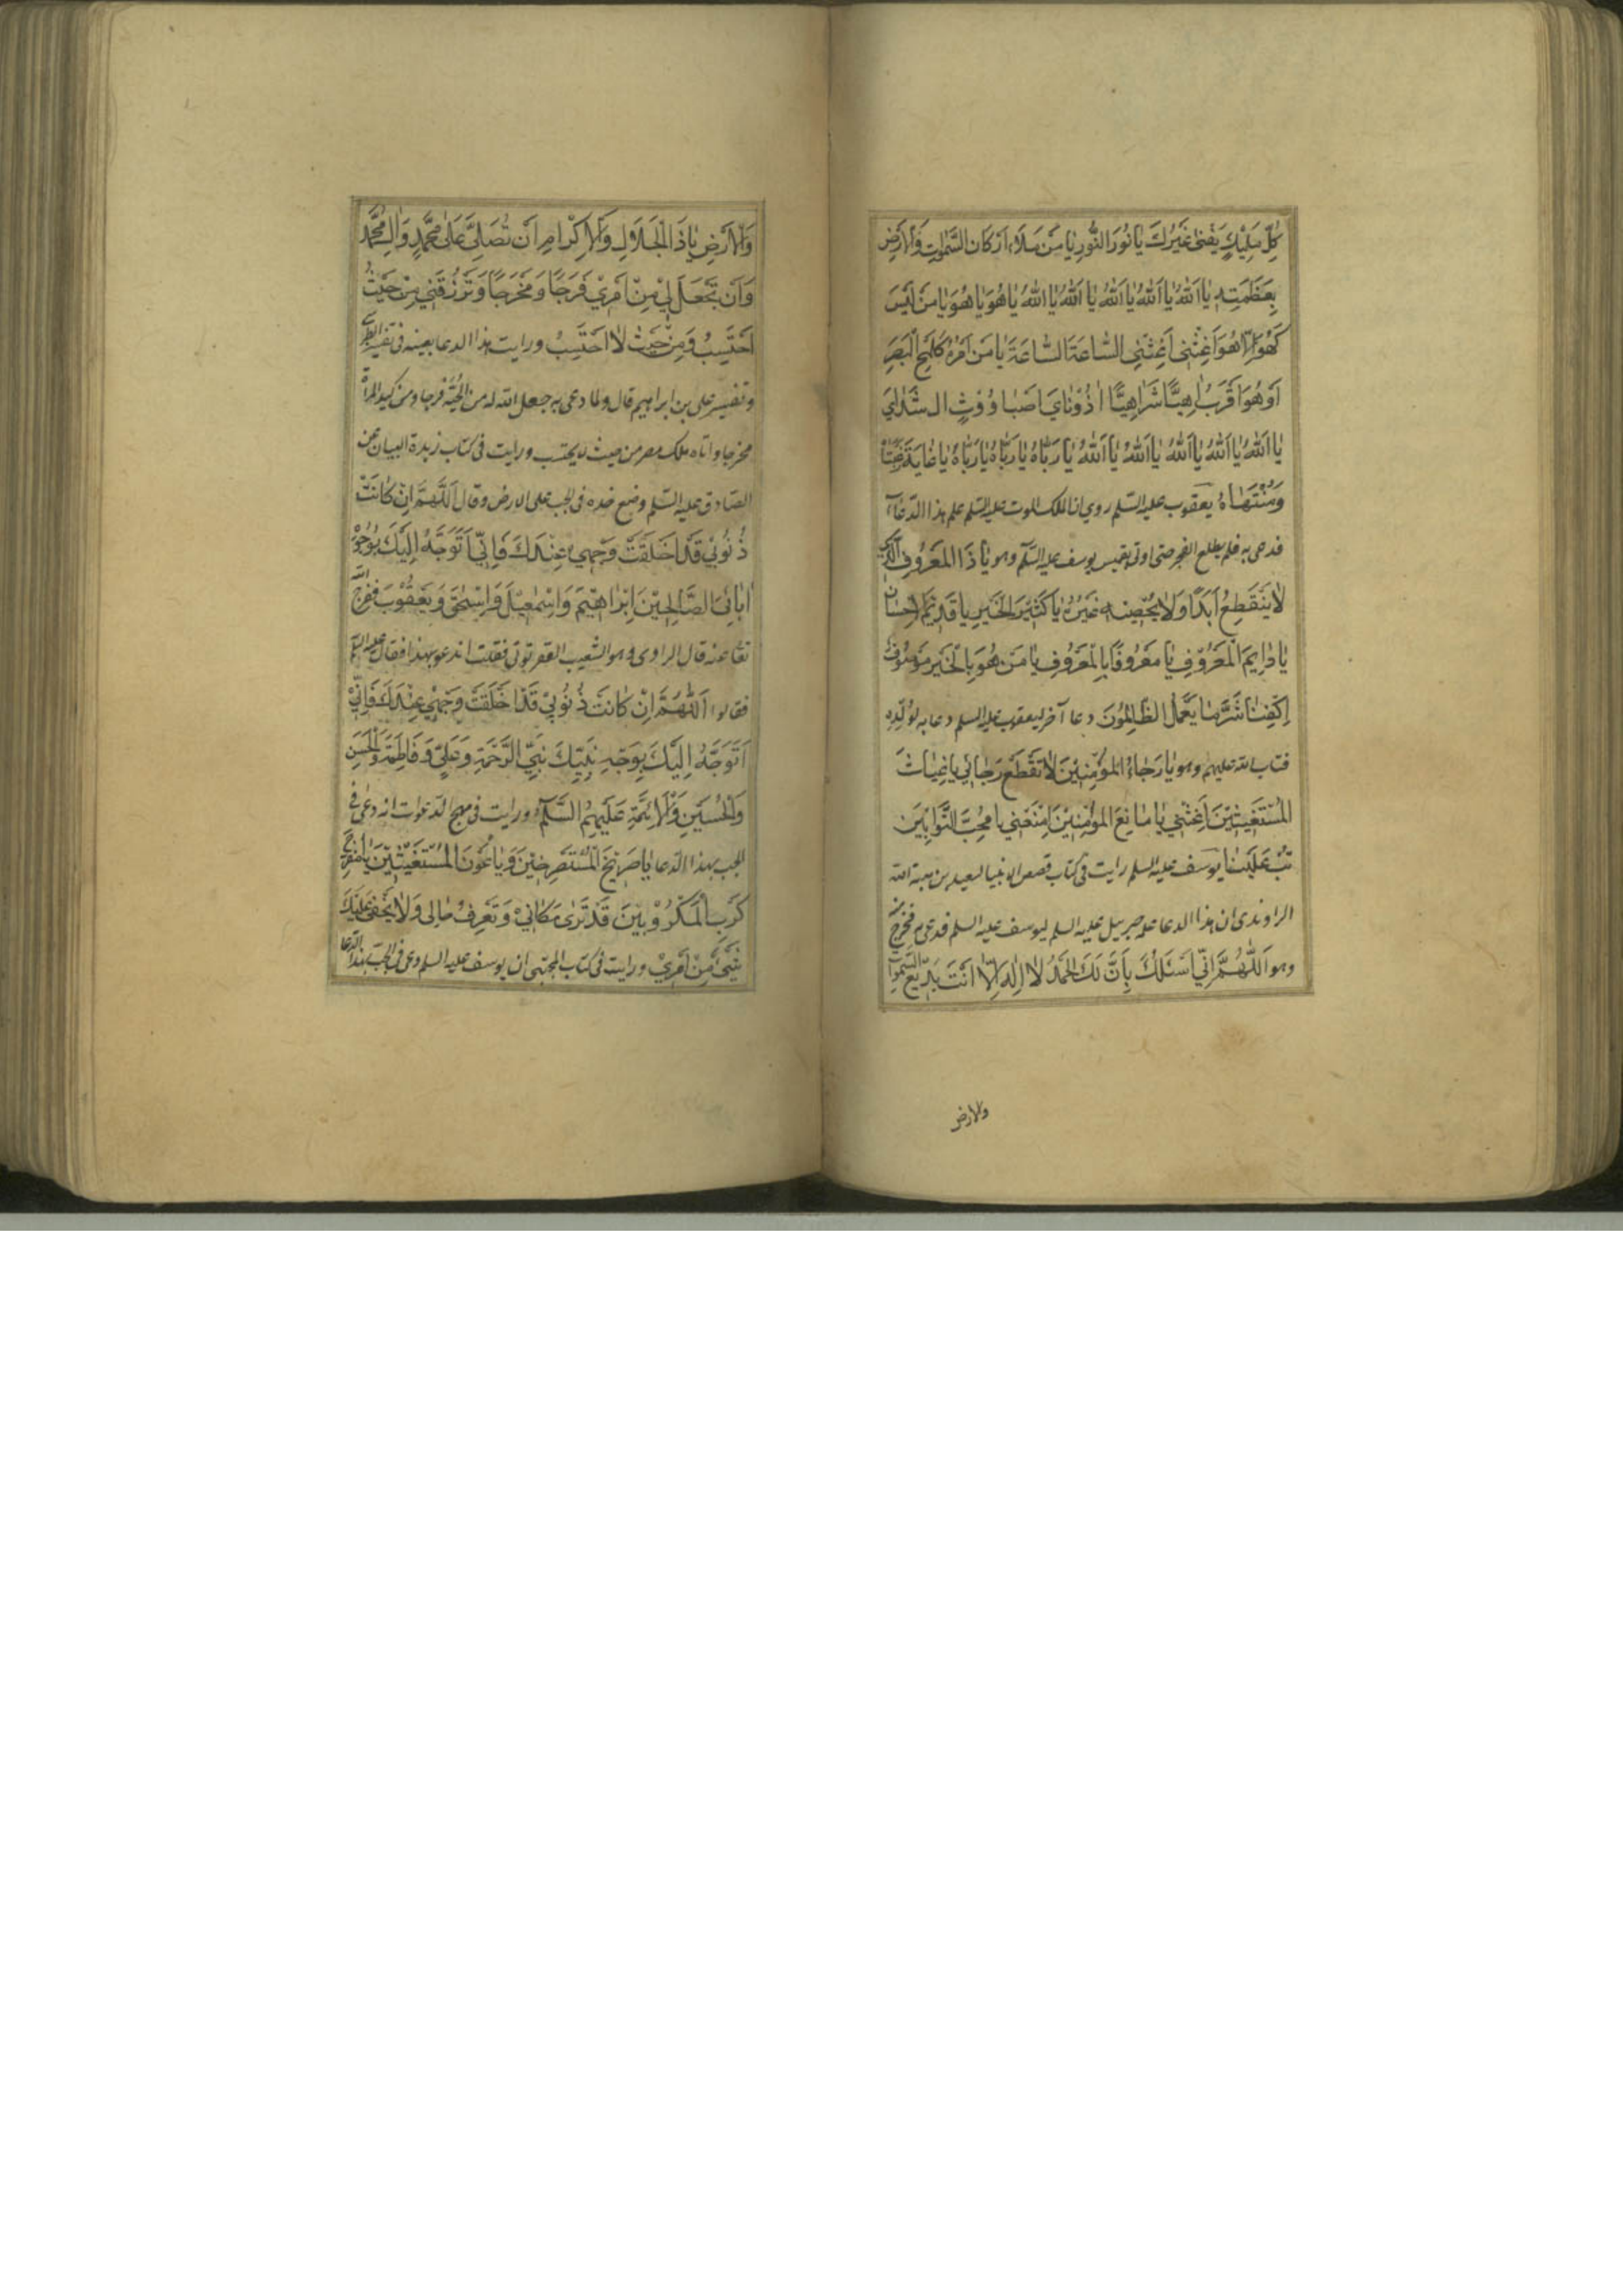 كُلَّ مَلِيْكٍ يَفْنىٰ غَيْرُكَ يٰا نُورَ النُّورِ يٰا مَنْ مَلَاءَ اَرْكَانَ السَّمٰوٰتِ وَالْاَرْضِ
بِعَظَمَتِهِ يٰا اَللّٰهُ يٰا اَللّٰهُ يٰا اَللّٰهُ يٰا اَللّٰهُ يٰا اَللّٰهُ يٰا هُوَ يٰا هُوَ يٰا مَنْ لَيْسَ
كَهُوَ اِلّٰا هُوَ اَغِثْنِي اَغِثْنِي السّٰاعَةَ السّٰاعَةَ يٰا مَنْ اَمْرُهُ كَلَمْحِ الْبَصَرِ
اَوْ هُوَ اَقْرَبُ اِهِيًّا شَرٰاهِيًّا اذُوْنٰايَ اصَبٰا وُوْثٍ ال شَدٰاي
يٰا اَللّٰهُ يٰا اَللّٰهُ يٰا اَللّٰهُ يٰا اَللّٰهُ يٰا اَللّٰهُ يٰا رَبّٰاهُ يٰا رَبّٰاهُ يٰا رَبّٰاهُ يٰا غٰايَةَ رَغْبَتٰاهْ
وَمُنْتَهٰاهُ يعقوب عليه السّلم روي ان الملك الموت عليه السّلم علم هذا الدّعآء
فدعى به فلم يطلع الفجر حتى اوتى بقميص يوسف عليه السّلم وهو يٰا ذَا الْمَعْرُوفِ الَّذِي
لٰا يَنْقَطِعُ اَبَدًا وَلٰا يُحْصِيهِ غَيْرُهُ يٰا كَثِيْرَ الْخَيْرِ يٰا قَدِيْمَ الْاِحْسٰانِ
يٰا دٰايِمَ الْمَعْرُوْفِ يٰا مَعْرُوفًا بِالْمَعْرُوفِ يٰا مَنْ هُوَ بِالْخَيْرِ مَوْصُوْفٌ
اِكْفِنٰا شَرَّ مٰا يَعْمَلُ الظّٰالِمُوْنَ دعا آخر ليعقوب عليه السلم دعا به لولده
فتاب الله عليهم وهو يٰا رَجٰاءَ الْمُؤْمِنِيْنَ لٰا تَقْطَعْ رَجٰائِي يٰا غِيٰاثَ
الْمُسْتَغِيثِيْنَ اَغِثْنِي يٰا مٰانِعَ الْمُؤْمِنِيْنَ اِمْنَعْنِي يٰا مُحِبَّ التَّوّٰابِيْنَ
تُبْ عَلَيْنٰا يوسف عليه السلم رايت فى كتاب قصص الانبيا لسعيد بن هبة الله
الراوندى ان هذا الدعا علمه جبريل عليه السلم ليوسف عليه السلم فدعى به فخرج
وهو اَللّٰهُمَّ اِنِّي اَسْئَلُكَ بِاَنَّ لَكَ الْحَمْدُ لٰا اِلٰهَ اِلّٰا اَنْتَ بَدِيْعُ السَّمٰوٰاتِ
والارض
وَالْاَرْضِ يٰا ذَا الْجَلٰالِ وَالْاِكْرٰامِ اَنْ تُصَلِّيَ عَلىٰ مُحَمَّدٍ وَاٰلِ مُحَمَّدٍ
وَاَنْ تَجْعَلَ لِيْ مِنْ اَمْرِيْ فَرَجًا وَمَخْرَجًا وَتَرْزُقَنِي مِنْ حَيْثُ
اَحْتَسِبُ وَمِنْ حَيْثُ لٰا اَحْتَسِبُ ورايت هذا الدعا بعينه فى تفسير الطبرسي
وتفسير على بن ابراهيم قال ولما دعى به جعل الله له من الجبّ فرجا ومن كيد المراة
مخرجا واتاه ملك مصر من حيث لا يحتسب ورايت فى كتاب زبدة البيان عن
الصّادق عليه السّلم وضع خده فى الجب على الارض وقال اَللّٰهُمَّ اِنْ كٰانَتْ
ذُنُوْبِيْ قَدْ اَخْلَقَتْ وَجْهِي عِنْدَكَ فَاِنِّي اَتَوَجَّهُ اِلَيْكَ بِوُجُوْهِ
اٰبٰائِيَ الصّٰالِحِيْنَ اِبْرٰاهِيْمَ وَاِسْمٰعِيْلَ وَاِسْحٰقَ وَيَعْقُوْبَ ففرج الله
تعا عنه قال الراوى فقلت اندعو بهذا فقال عليه السلم
فقولوا اَللّٰهُمَّ اِنْ كٰانَتْ ذُنُوْبِيْ قَدْ اَخْلَقَتْ وَجْهِيْ عِنْدَكَ فَاِنِّيْ
اَتَوَجَّهُ اِلَيْكَ بِوَجْهِ نَبِيِّكَ نَبِيِّ الرَّحْمَةِ وَعَلِيٍّ وَفٰاطِمَةَ وَالْحَسَنِ
وَالْحُسَيْنِ وَالْاَئِمَّةِ عَلَيْهِمُ السَّلٰمُ ورايت فى مهج الدّعوات انه دعى فى
الجب بهذا الدّعا يٰا صَرِيْخَ الْمُسْتَصْرِخِيْنَ وَيٰا غَوْثَ الْمُسْتَغِيْثِيْنَ يٰا مُفَرِّجَ
كَرْبِ الْمَكْرُوْبِيْنَ قَدْ تَرىٰ مَكٰانِيْ وَتَعْرِفُ حٰالِى وَلٰا يَخْفىٰ عَلَيْكَ
شَيْءٌ مِنْ اَمْرِيْ ورايت فى كتاب المجتبى ان يوسف عليه السلم دعى فى الجبّ بهذا الدّعا